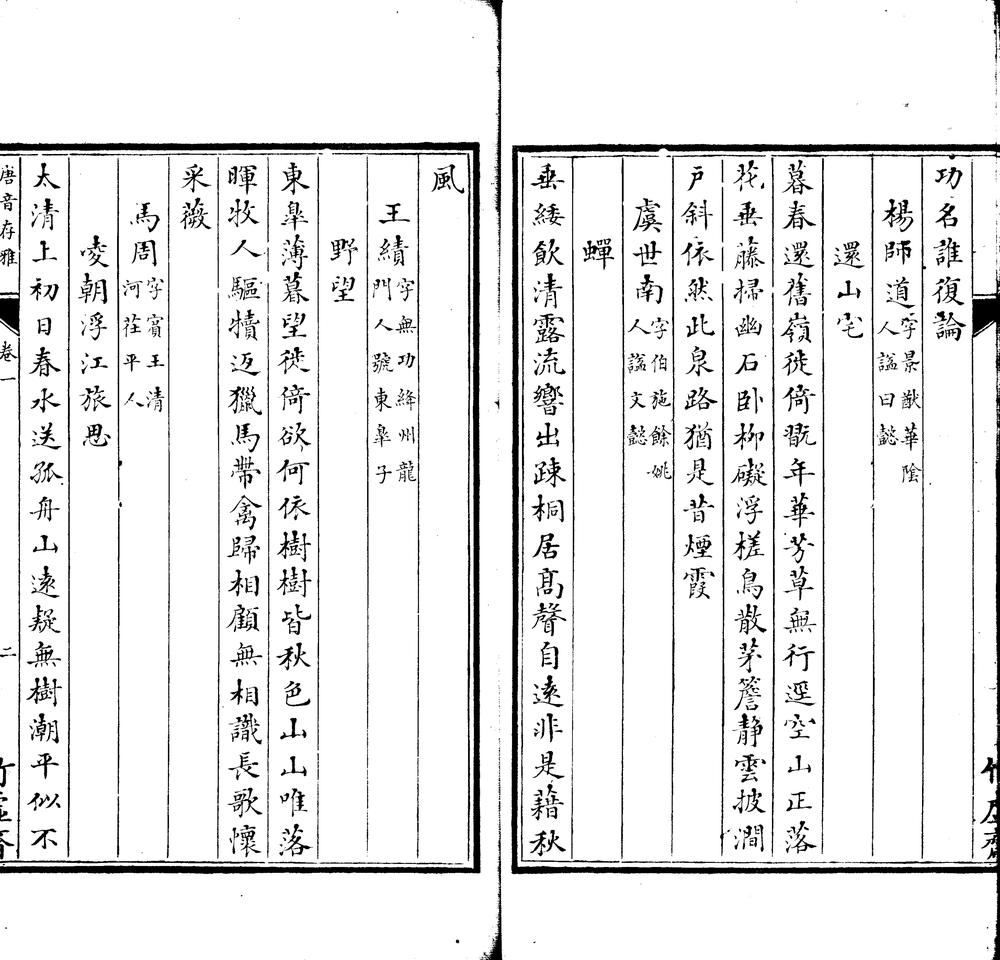 功名誰復論
楊師道字景猷華陰人諡曰懿
還山宅
暮春還舊嶺徙倚翫年華芳草無行逕空山正落
花垂藤掃幽石卧柳礙浮槎鳥散茅簷静雲披澗
户斜依然此泉路猶是昔煙霞
虞世南字伯施餘姚人諡文懿
蟬
垂緌飲清露流響出踈桐居髙聲自逺非是藉秋
風
王績字無功絳州龍門人號東皋子
野望
東皋薄暮望徙倚欲何依樹樹皆秋色山山唯落
暉牧人驅犢返獵馬帶禽歸相顧無相識長歌懷
采薇
馬周字賓王清河茌平人
凌朝浮江旅思
太清上初日春水送孤舟山逺疑無樹潮平似不
唐音存雅
卷一
二